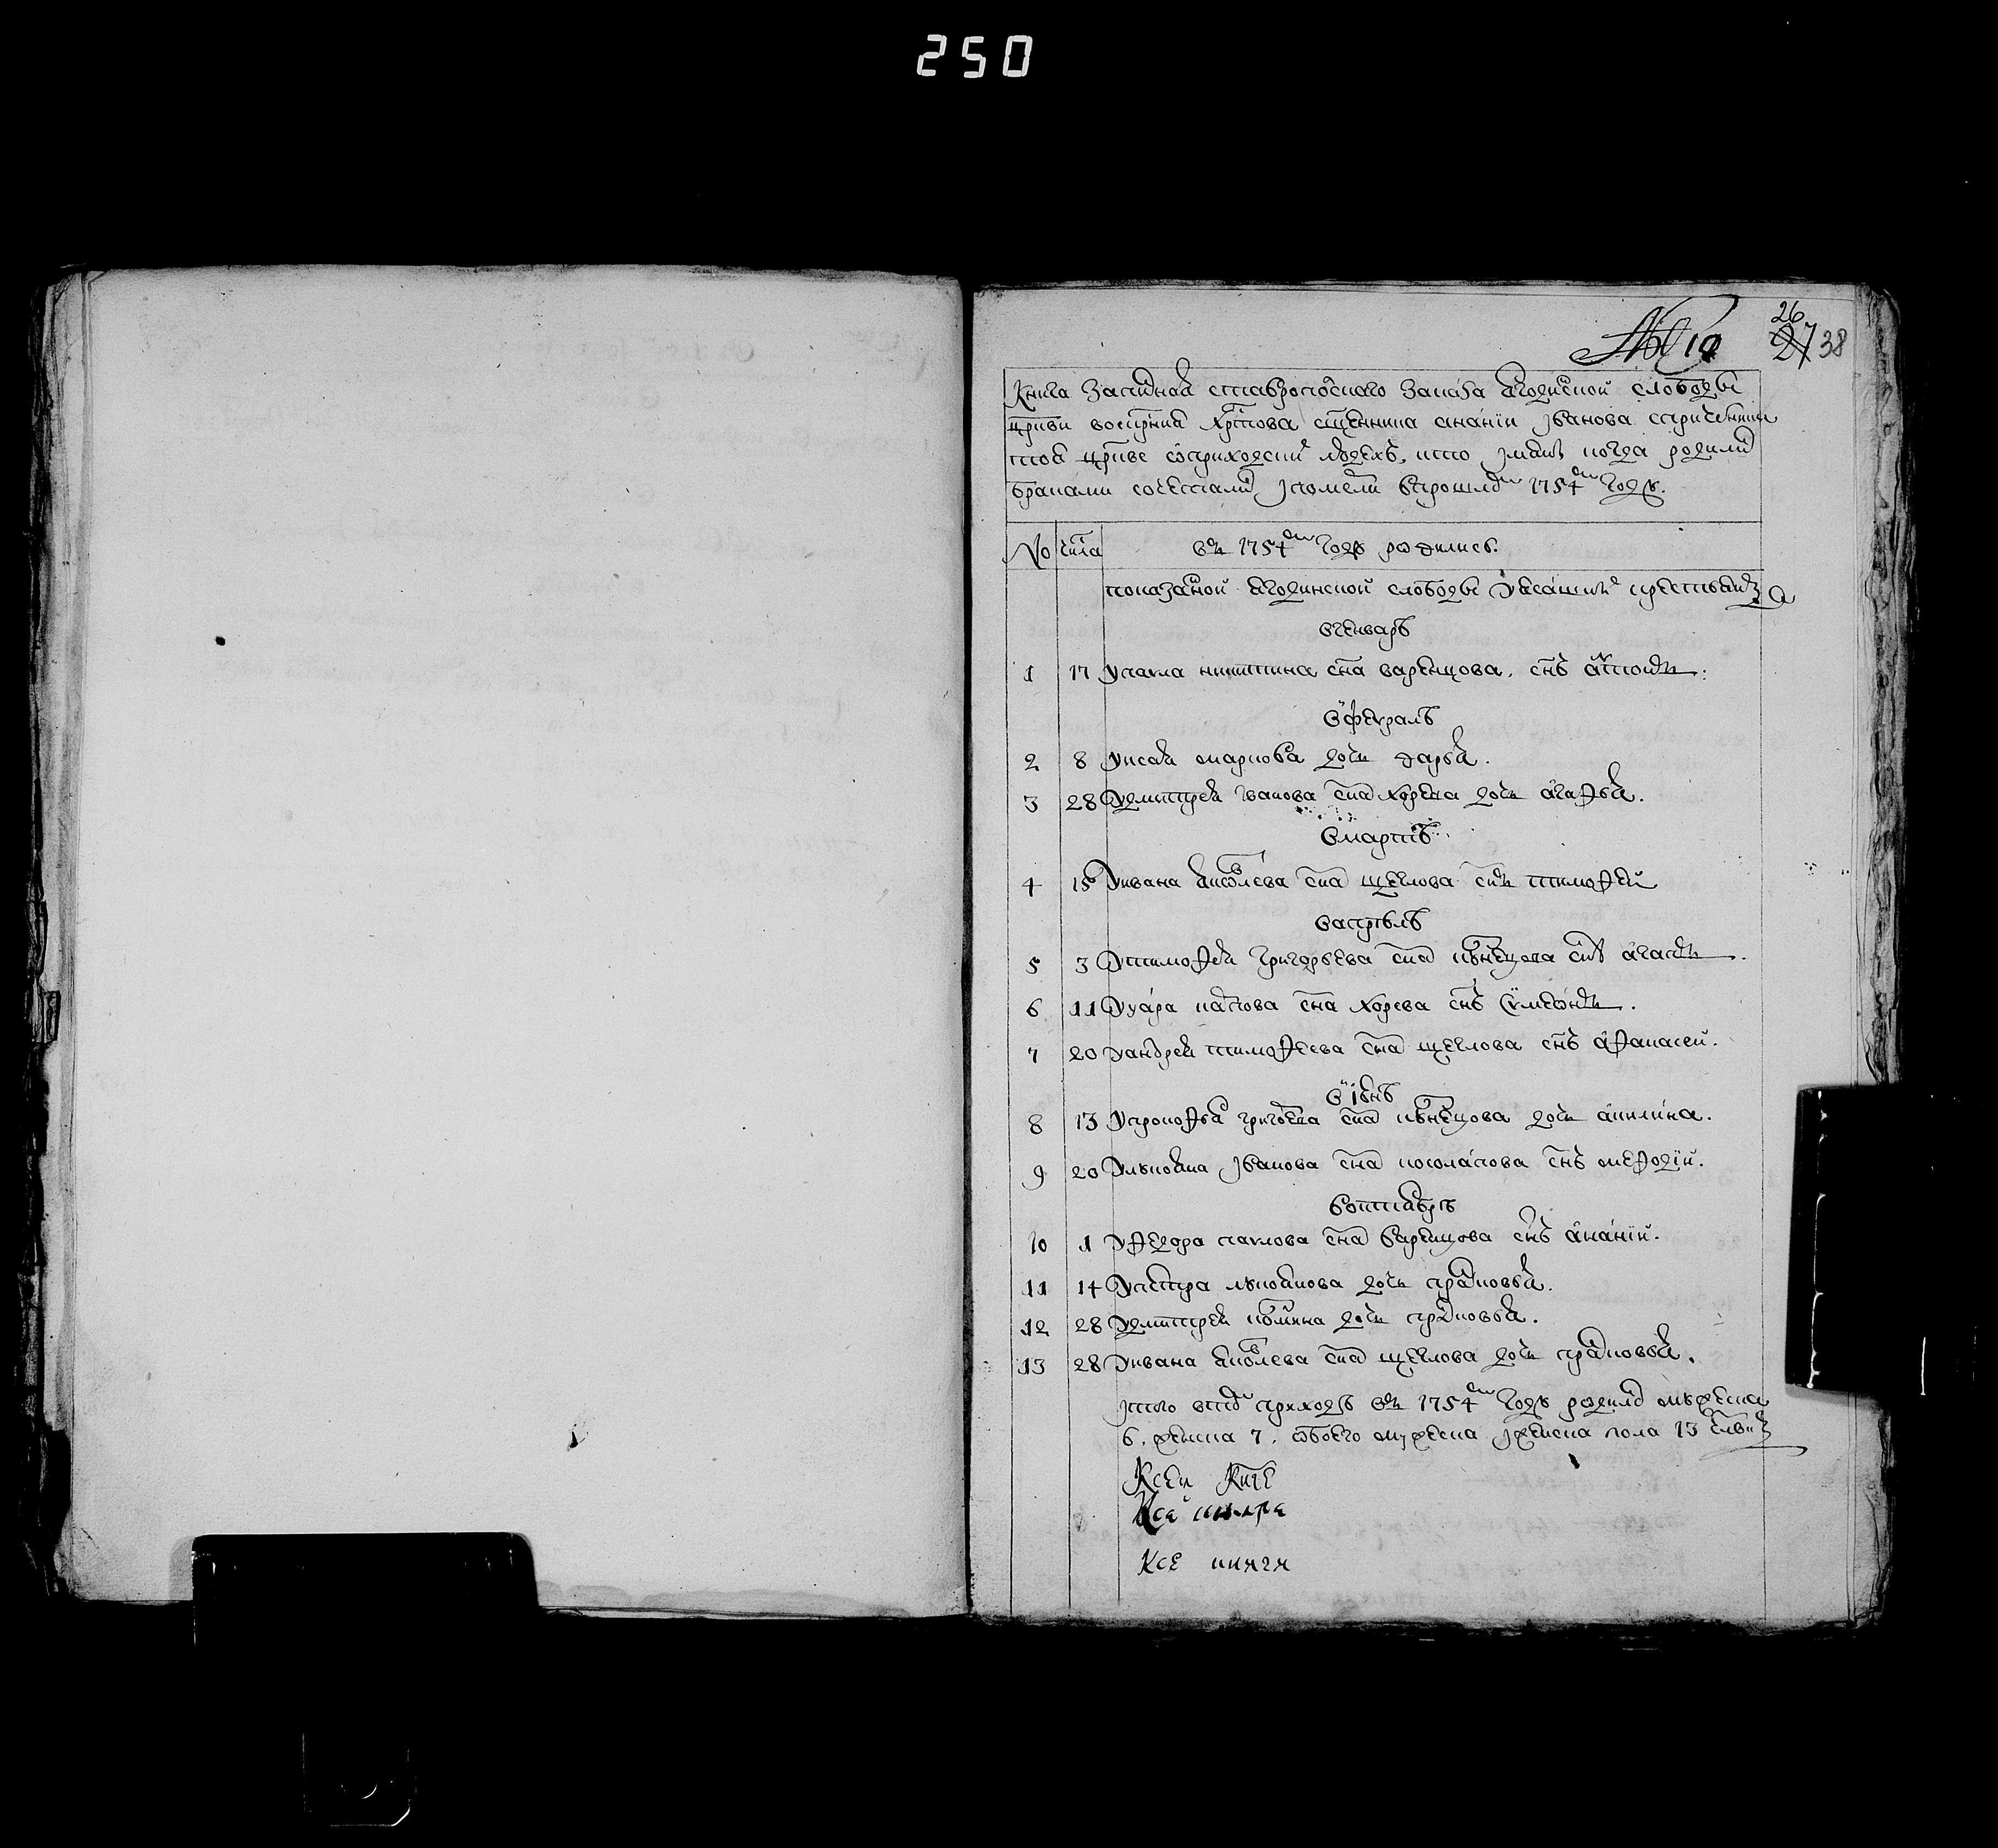 250
№ 10
26
27 38
Книга записная ставропоского заказа ягодинской слободы
цркви воскрниа хрстова сщенника ананіи іванова спричетники
тоя цркве оприходски людехъ, кто імянъ когда родили
браками сочетали, іпомели впрошлом 1754м году.
№ числа вн 1754м году родились.
показаной ягодинской слободы уясашнх крестьянъ
вгенваръ
1 17 упавла никитина сна варенцова, снъ антонъ.
вфевралъ
2 8 уисая маркова дочь дарья.
3 28 удмитрея іванова сна хорева дочь агафья.
вмартъ
4 15 уивана яковлева сна щеглова снъ тимофей
вапрѣлъ
5 3 утимофея григорьева сна кузнецова снъ агапъ.
6 11 ууара карпова сна хорева снъ сумеонъ.
7 20 уандрея тимофеева сна щеглова снъ афанасей.
віюнъ
8 13 упрокофья григоева сна кузнецова дочь акилина.
9 20 улукояна іванова сна снъ мефодій.
воктябръ
10 1 уфедора павлова сна варенцова снъ ананіи.
11 14 упетра лукоянова дочь прасковья.
12 28 удмитрея кузмина дочь прасковья.
13 28 уивана яковлева сна щеглова дочь прасковья.
ітого втом приходѣ вн 1754м году родило мужеска
6. женска 7. обоего мужеска іженска пола 13 члвкъ
Ксеи Книге
Ксе
Ксе книги